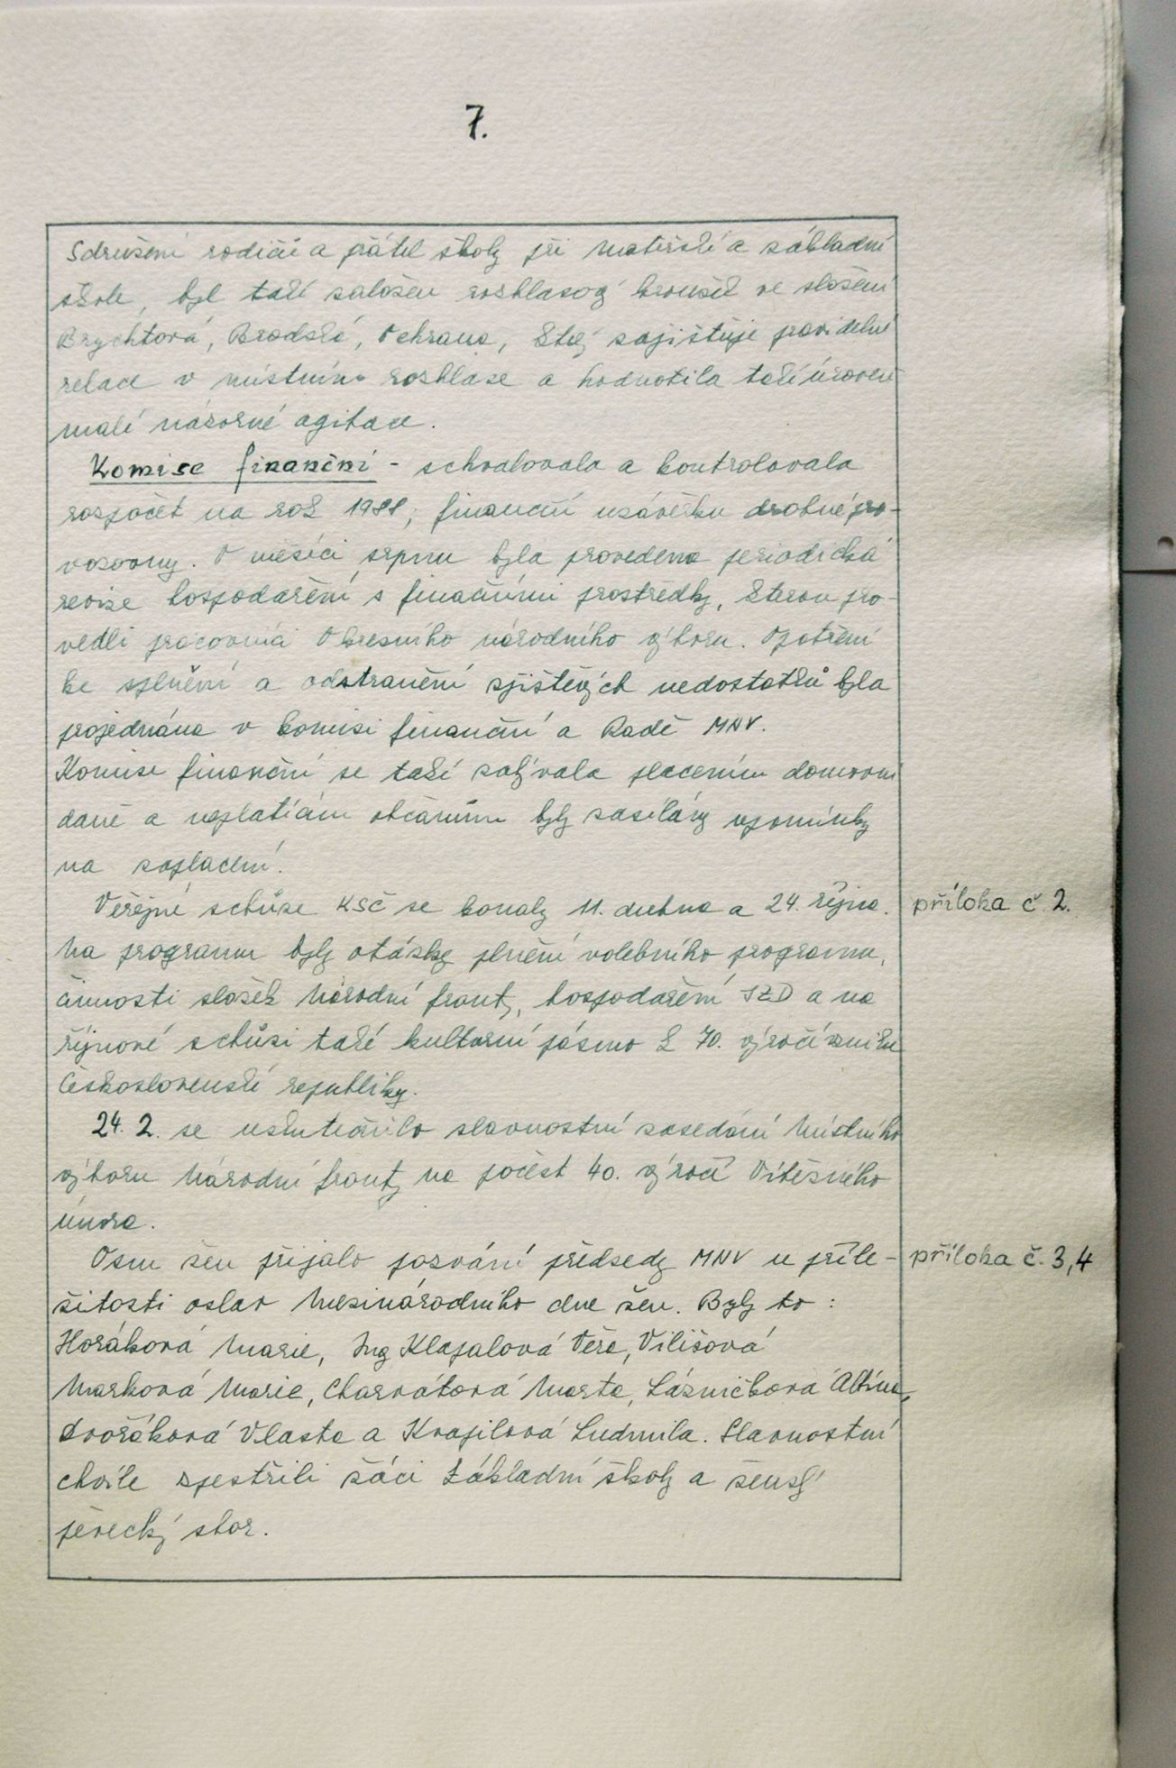 7.
Sdružení rodičů a přátel školy při mateřské a základní
škole, byl také založen rozhlasový kroužek ve složení
Brychtová, Brodská, Ochrana, který zajištuje pravidelné
relace v místním rozhlase a hodnotila také úroveň
malé názorné agitace.
Komise finanční - schvalovala a kontrolovala
rozpočet na rok 1988, finanční uzávěrku drobné pro-
vozovny. V měsíci srpnu byla provedena periodická
revize hospodaření s finančními prostředky, kterou pro-
vedli pracovníci Okresního národního výboru. Opatření
ke splnění a odstranění zjištěných nedostatků byla
projednána v komisi finanční a Radě MNV.
Komise finanční se také zabývala placením domovní
daně a neplatícím občanům byly zasílány upomínky
na zaplacení.
Veřejné schůze KSČ se konaly 11. dubna a 24. října. příloha č 2.
Na programu byly otázky plnění volebního programu,
činnosti složek Národní fronty, hospodaření JZD a na
říjnové schůzi také kulturní pásmo k 70. výročí vzniku
Československé republiky.
24. 2. se uskutečnilo slavnostní zasedání Místního
výboru Národní fronty na počest 40. výročí Vítězného
února.
Osm žen přijalo pozvání předsedy MNV u příle- příloha č. 3,4
žitosti oslav Mezinárodního dne žen. Byly to :
Horáková Marie, Ing Klapalová Věra, Vilišová
Marková Marie, Charvátová Marta, Lázničková Albína,
Dvořáková Vlasta a Kvapilová Ludmila. Slavnostní
chvíle zpestřili žáci Základní školy a ženský
pěvecký sbor.